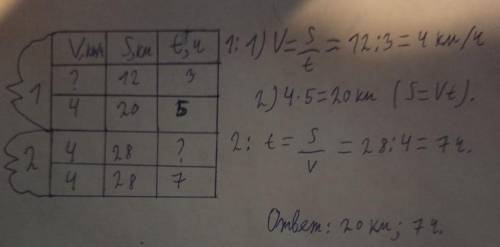 V, км/ч S, км t, ч
1 ? 12 3
4 20 5
2 4 28 ?
4 28 7
1: 1) V = S/t = 12 : 3 = 4 км/ч
2) 4 · 5 = 20 км (S = Vt).
2: t = S/V = 28 : 4 = 7 ч.
Ответ: 20 км; 7 ч.